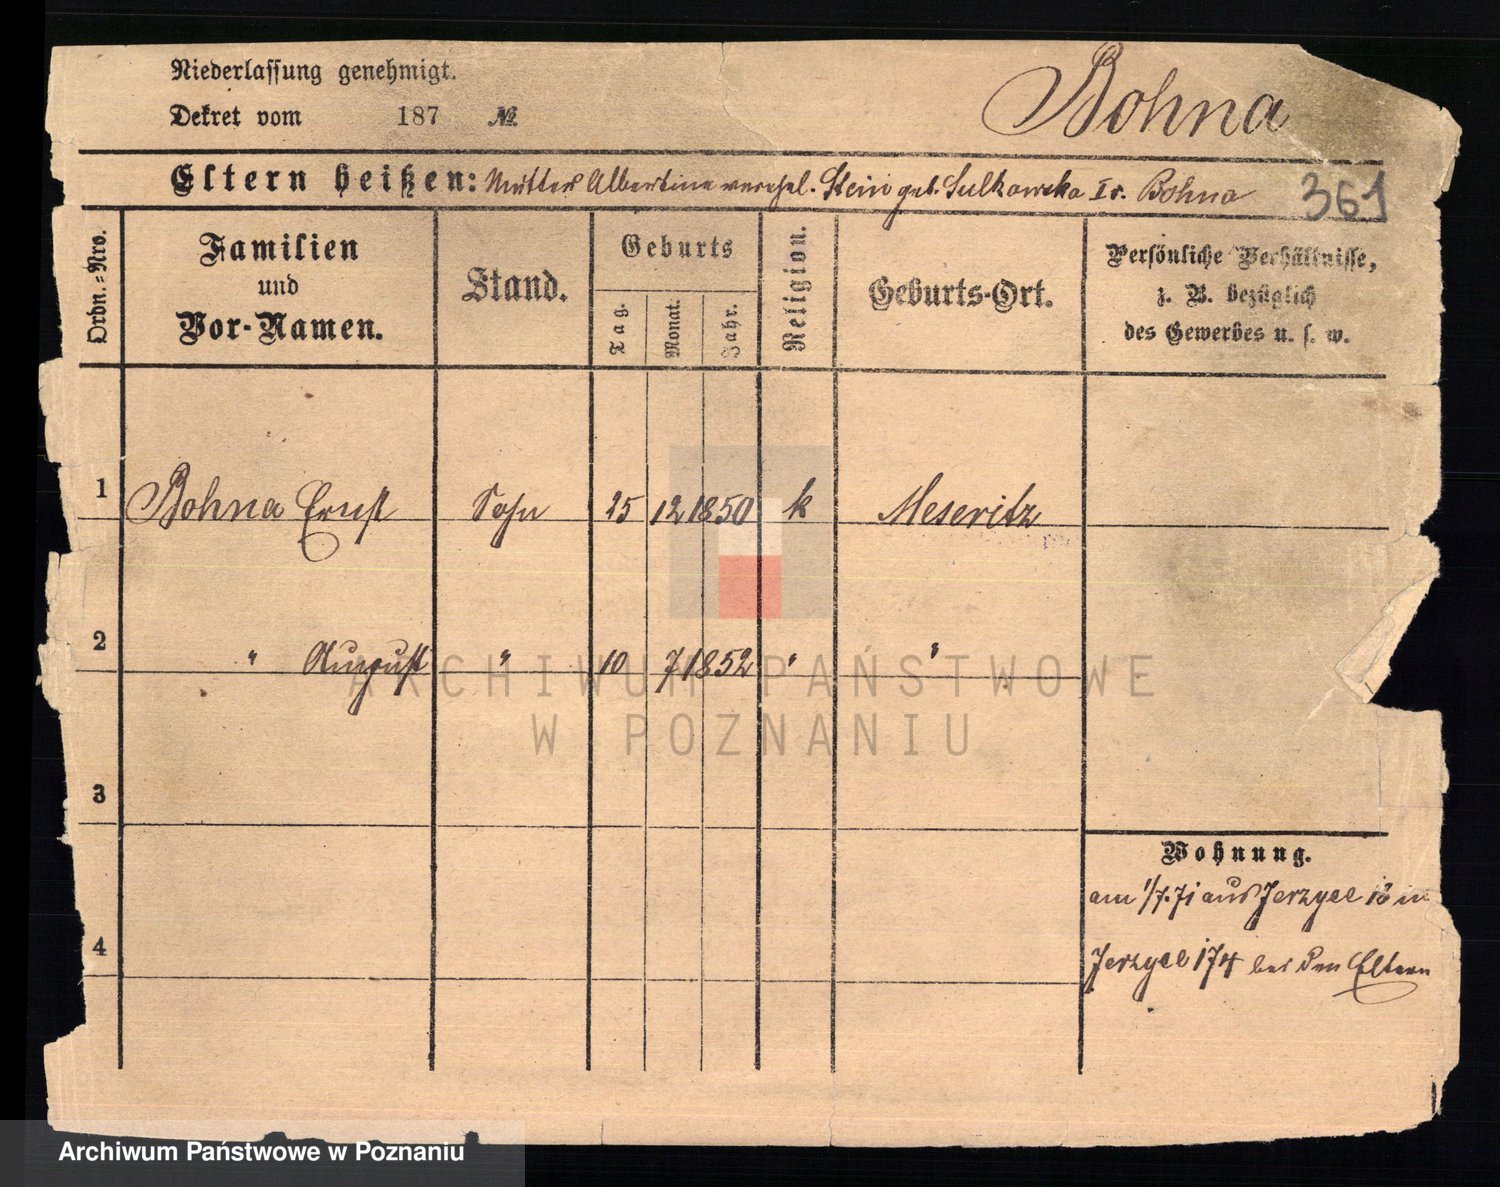 Niederlassung genehmigt.
Dekret vom 187 №
Bohna
Eltern heißen: Mutter Albertine verehel. Stein geb. Sulkowska I v. Bohna
361
Ordn.=Nro.
Familien
und
Vor-Namen.
Stand.
Geburts
Tag.
Monat.
Jahr.
Religion.
Geburts-Ort.
Persönliche Verhältnisse,
z. B. bezüglich
des Gewerbes u. s. w.
1 Bohna Ernst Sohn 25 12 1850 k Meseritz
2 " August " 10 7 1852 " "
3
Wohnung.
am 1/7.71 aus Jerzyce 18 in
4
Jerzyce 174 bei den Eltern
ARCHIWUM PAŃSTWOWE
W POZNANIU
Archiwum Państwowe w Poznaniu